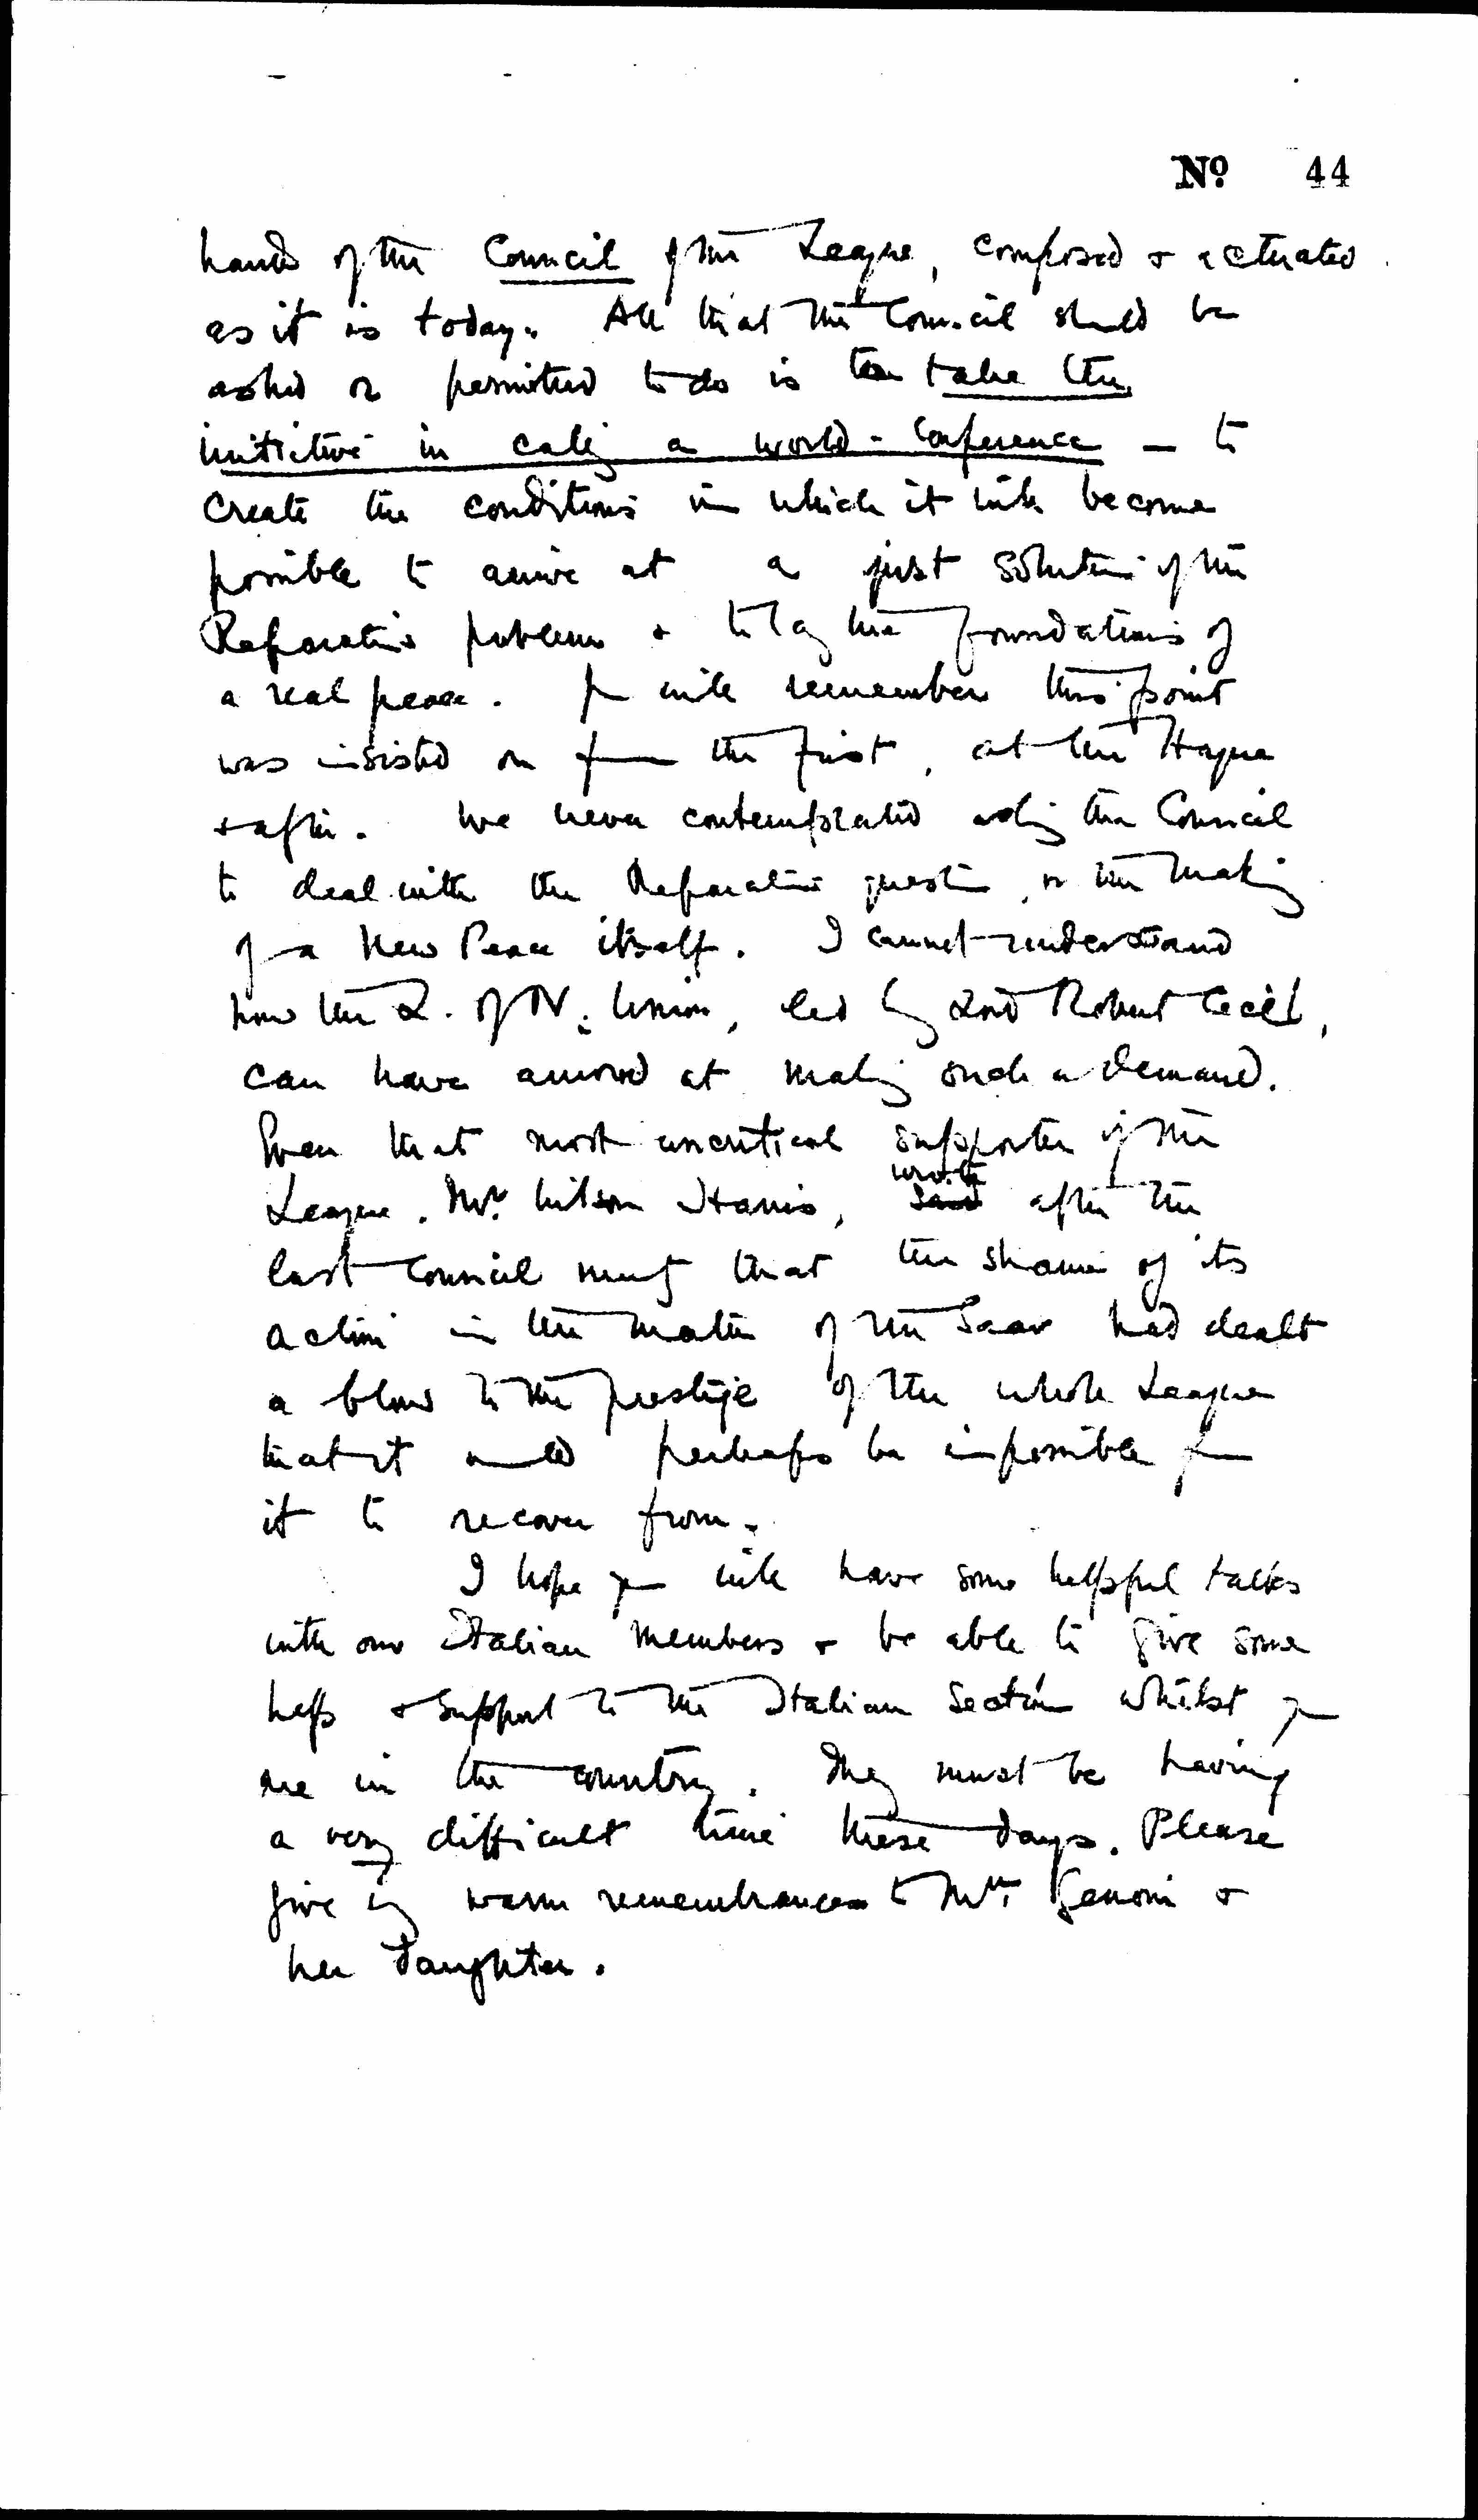 Nº 44
hands of the Council of the League, composed & actuated
as it is today. All that the Council should be
asked or permitted to do is to take the
initiative in calling a world-conference — to
create the conditions in which it will become
possible to arrive at a just solution of the
Reparations problem & to lay the foundations of
a real peace. You will remember this point
was insisted on from the first, at the Hague
& after. We never contemplated asking the Council
to deal with the Reparations question, or the making
of a New Peace itself. I cannot understand
how the L. of N. Union, led by Lord Robert Cecil,
can have arrived at making such a demand.
Even that most uncritical supporter of the
League. Mr. Wilson Harris, said wrote after the
last Council meeting that the shame of its
action in the matter of the Saar had dealt
a blow to the prestige of the whole League
that it would perhaps be impossible for
it to recover from.
I hope you will have some helpful talks
with our Italian members & be able to give some
help & support to the Italian Section whilst you
are in the country. They must be having
a very difficult time these days. Please
give my warm remembrances to Mme Genoni &
her daughter.